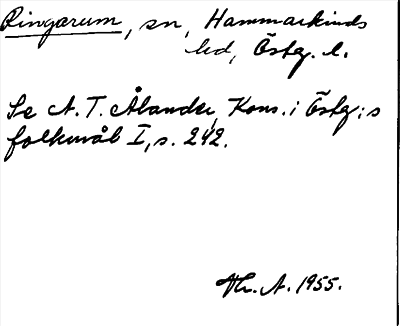 Ringarum, sn, Hammarkinds
hd, Östg. l.
Se A. T. Ålander, Kons. i Östg:s
folkmål I, s. 242.
Hr. A. 1955.